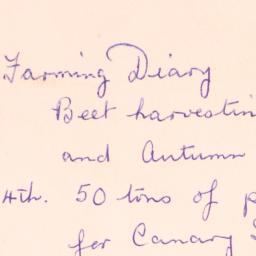 Farming Diary
Beet harvestin
and Autumn
4th. 50 tons of p
for Canary